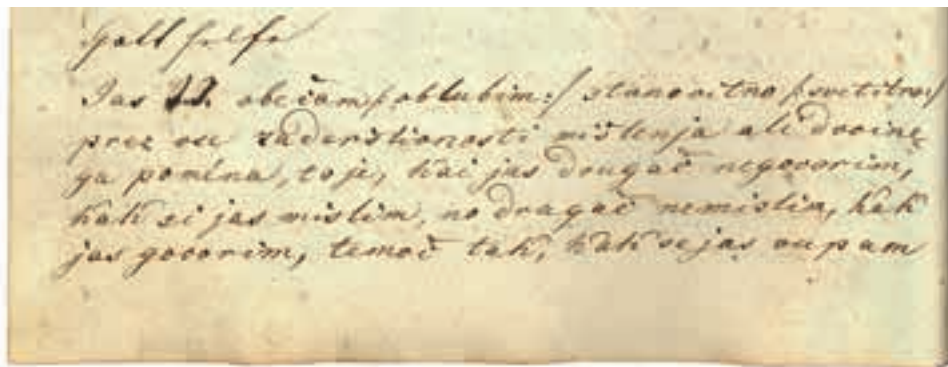 Gott helfe
Jas N. N. obečam /: oblubim :/ stanovitno /: svetitno :/
prez vse zaderžlionosti mišlenja ali dvoine
ga pomina, to je, kai jas drugač negovorim,
kak si jas mislim, no dragač nemislim, kak
jas govorim, temoč tak, kak se jas vupam